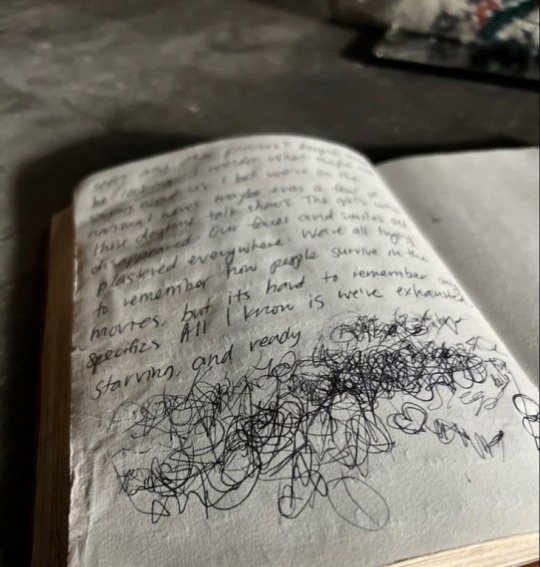 seen any other
be looking. I wonder what people are
saying about us. I bet we're on the
national news maybe even a few of
those daytime talk shows. The girls who
disappeared. Our faces and smiles are
plastered everywhere. We're all trying
to remember how people survive in the
movies, but its hard to remember any
specifics. All I know is we're exhausted
starving, and ready